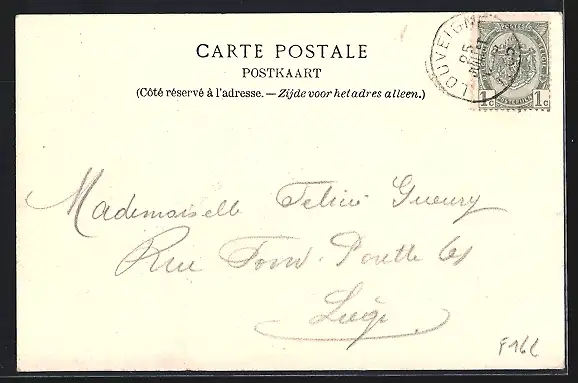 CARTE POSTALE
POSTKAART
(Côté réservé à l'adresse. — Zijde voor het adres alleen.)
LOUVEIGNÉ
1c 1c
Mademoiselle Gueury
Rue 61
Liège
F16L